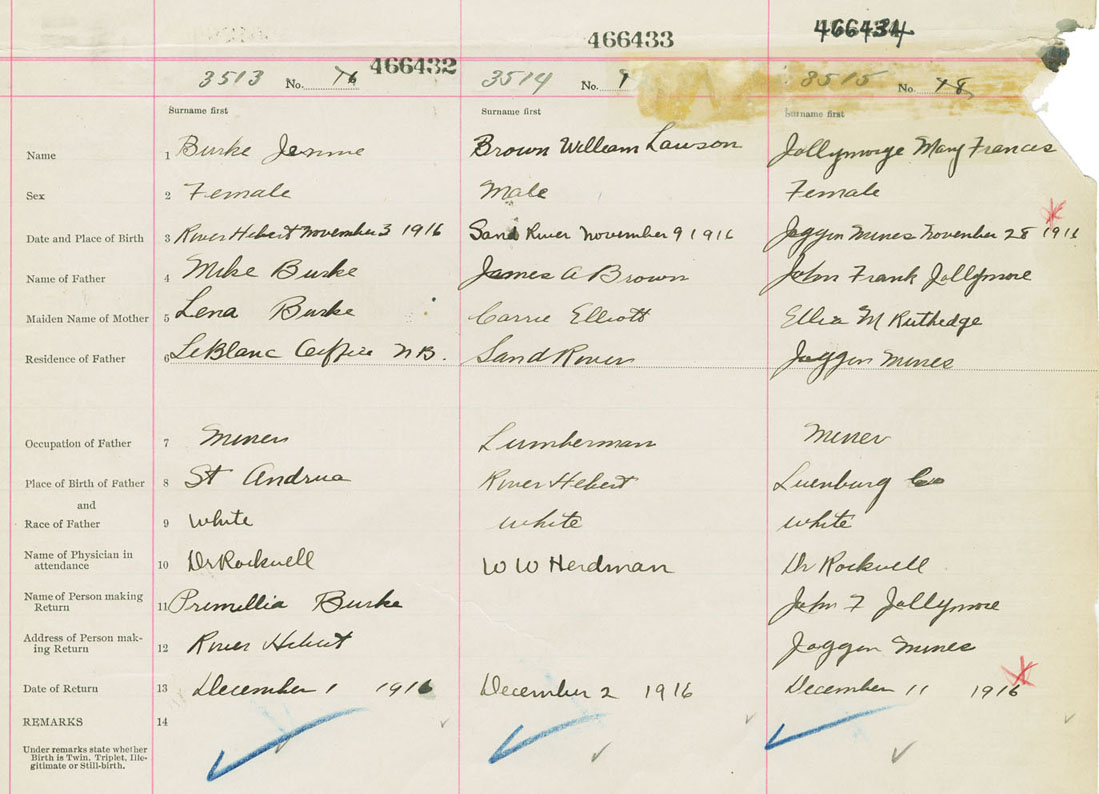 466432 466433 466434
3513 No. 76 3514 No. 3515 No. 78
Surname first Surname first Surname first
Name 1 Burke Jennie Brown William Lawson Jollymore Mary Frances
Sex 2 Female Male Female
Date and Place of Birth 3 River Hebert November 3 1916 Sand River November 9 1916 Joggin Mines November 28 1916
Name of Father 4 Mike Burke James A Brown John Frank Jollymore
Maiden Name of Mother 5 Lena Burke Carrie Elliott M Ruthedge
Residence of Father 6 LeBlanc N.B. Sand River Joggin Mines
Occupation of Father 7 Miner Lumberman Miner
Place of Birth of Father 8 St Andrua River Hebert Luenburg Co
and
Race of Father 9 White White White
Name of Physician in
attendance 10 Dr Rockwell W W Herdman Dr Rockwell
Name of Person making
Return 11 Premillia Burke John F Jollymore
Address of Person mak-
ing Return 12 River Hebert Joggin Mines
Date of Return 13 December 1 1916 December 2 1916 December 11 1916
REMARKS 14
Under remarks state whether
Birth is Twin, Triplet, Ille-
gitimate or Still-birth.